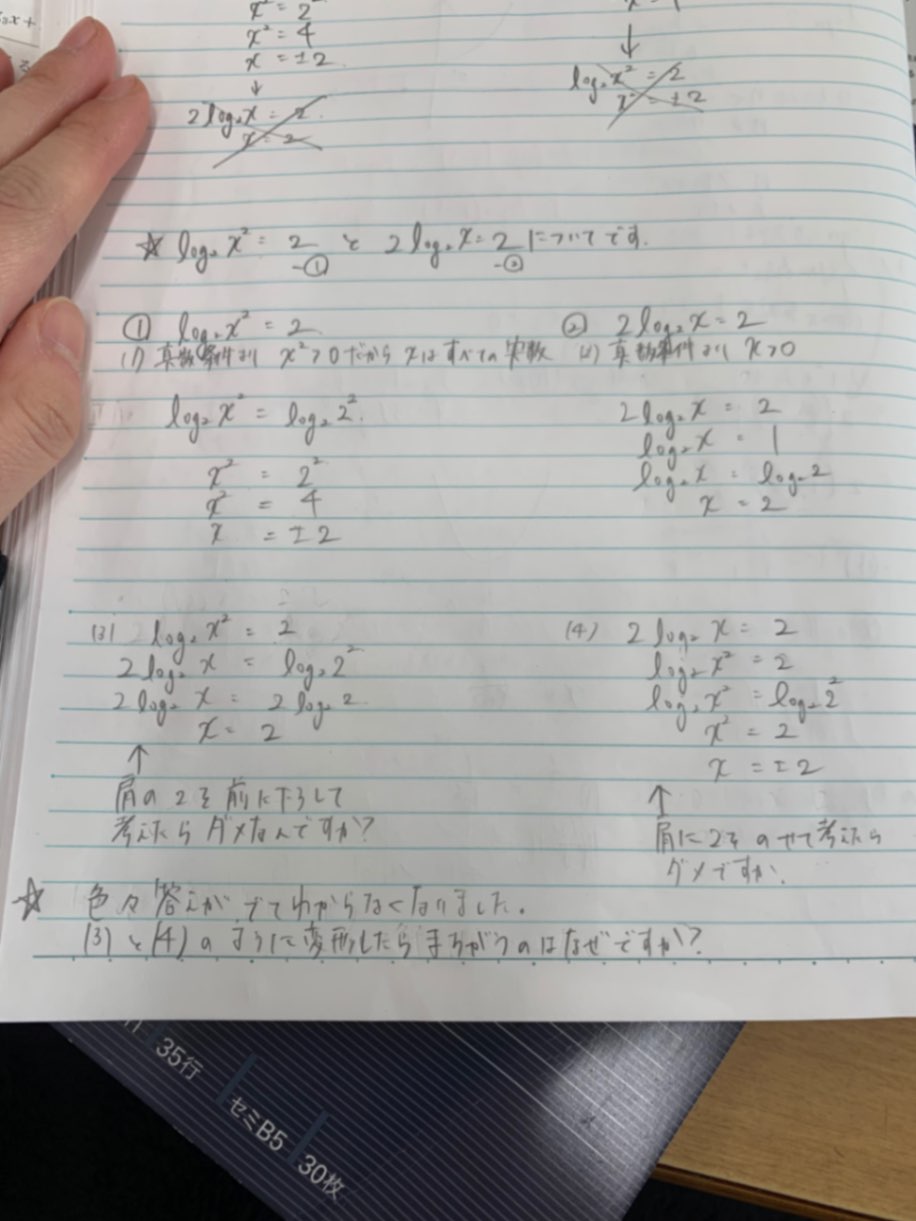 x² = 2²
x² = 4
x = ±2
↓
2log₂x = 2
x = 2
↓
log₂x² = 2
x² = ±2
☆ log₂x² = 2 -① と 2log₂x = 2 -② についてです.
① log₂x² = 2
(1) 真数条件より x²>0だから xはすべての実数
log₂x² = log₂2².
x² = 2²
x² = 4
x = ±2
② 2log₂x = 2
(2) 真数条件より x>0
2log₂x = 2
log₂x = 1
log₂x = log₂2
x = 2
(3) log₂x² = 2
2log₂x = log₂2²
2log₂x = 2log₂2
x = 2
↑
肩の2を前に下ろして
考えたらダメなんですか?
(4) 2log₂x = 2
log₂x² = 2
log₂x² = log₂2²
x² = 2
x = ±2
↑
肩に2をのせて考えたら
ダメですか.
☆ 色々答えがでてわからなくなりました.
(3)と(4)のように変形したらまちがうのはなぜですか?
35行
セミB5
30枚